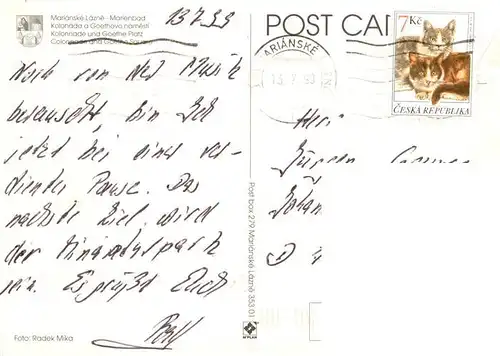 Mariánské Lázně - Marienbad
Kolonáda a Goethovo náměstí
Kolonnade und Goethe Platz
Colonnade and Goethe Square
13.7.99
POST CAR
7 Kč
ČESKÁ REPUBLIKA
ARIÁNSKÉ
13. 7. 99
Noch von der Musik
berauscht, bin ich
jetzt bei einer ver-
dienten Pause. Das
nächste Ziel wird
der Miniaturpark
sein. Es grüßt Euch
Herr
Jürgen
D
Post box 279 Mariánské Lázně 353 01
Foto: Radek Mika